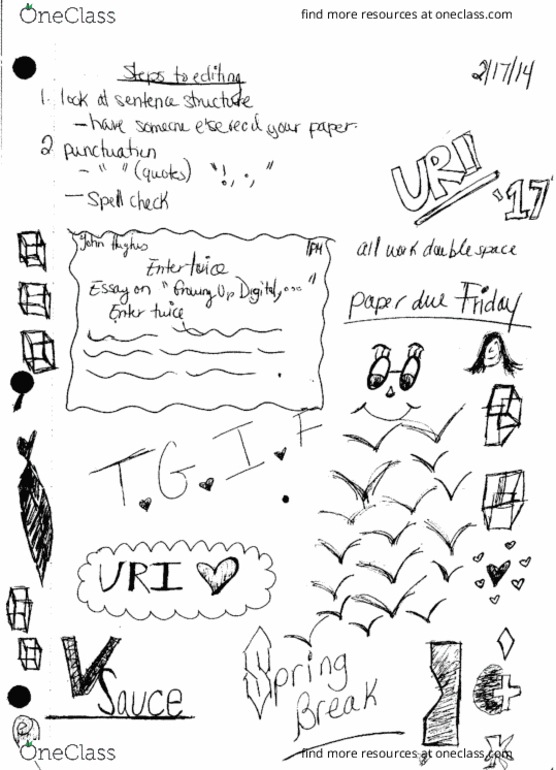 OneClass
find more resources at oneclass.com
2/17/14
Steps to editing
1. look at sentence structure
- have someone else read your paper.
2 punctuation
- " " (quotes) "!, . , "
- Spell check
URI '17
John Hughes 1PM
Enter twice
Essay on "Growing Up Digital,..."
Enter twice
all work double space
paper due Friday
T.G.I.F
URI
V
Sauce
Spring
Break
e
OneClass
find more resources at oneclass.com